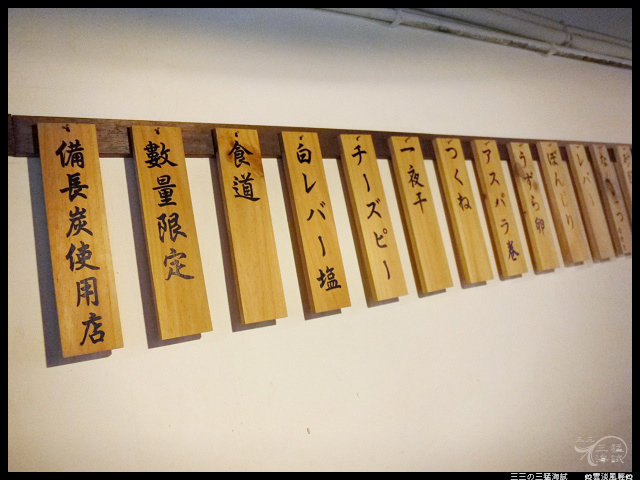 備長炭使用店
數量限定
食道
白レバー塩
チーズピー
一夜干
つくね
アスパラ巻
うずら卵
ぼんじり
レバ
三三の三猛海賊